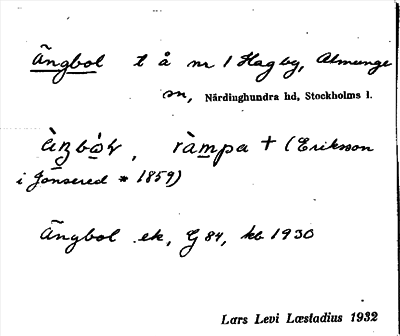 Ängbol t å nr 1 Hagby, Almunge
sn, Närdinghundra hd, Stockholms l.
ràmpa † (Eriksson
i Jonsered * 1859)
Ängbol ek, G 84, kb 1930
Lars Levi Læstadius 1932